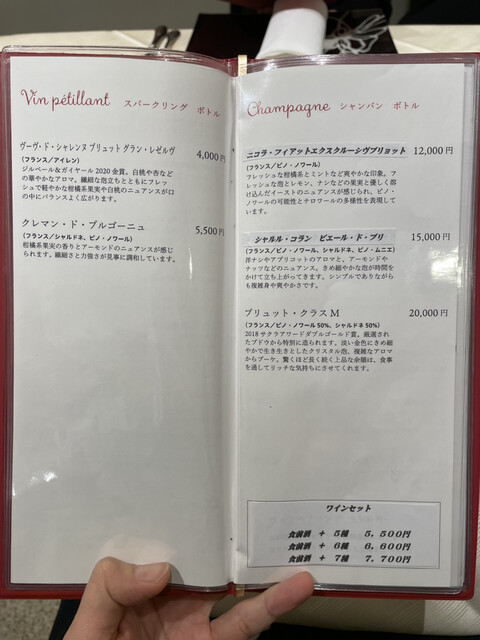 Vin pétillant スパークリング ボトル
ヴーヴ・ド・シャレンヌ ブリュット グラン・レゼルヴ 4,000円
(フランス/アイレン)
ジルベール&ガイヤール 2020 金賞。白桃や杏など
の華やかなアロマ。繊細な泡立ちとともにフレッ
シュで軽やかな柑橘系果実や白桃のニュアンスが口
の中にバランスよく広がります。
クレマン・ド・ブルゴーニュ 5,500円
(フランス/シャルドネ、ピノ・ノワール)
柑橘系果実の香りとアーモンドのニュアンスが感じ
られます。繊細さと力強さが見事に調和しています。
Champagne シャンパン ボトル
ニコラ・フィアットエクスクルーシヴブリョット 12,000円
(フランス/ピノ・ノワール)
フレッシュな柑橘系とミントなど爽やかな印象。フレ
ッシュな泡とレモン、ナシなどの果実と優しく溶
け込んだイーストのニュアンスが感じられ、ピノ・
ノワールの可能性とテロワールの多様性を表現して
います。
シャルル・コラン ピエール・ド・プリ 15,000円
(フランス/ピノ・ノワール、シャルドネ、ピノ・ムニエ)
洋ナシやアプリコットのアロマと、アーモンドや
ナッツなどのニュアンス。きめ細やかな泡が時間を
かけて立ち上がってきます。シンプルでありながら
も複雑身や爽やかさです。
ブリュット・クラス M 20,000円
(フランス/ピノ・ノワール 50%、シャルドネ 50%)
2018 サクラアワードダブルゴールド賞。厳選され
たブドウから特別に造られます。淡い金色にきめ細
やかで生き生きとしたクリスタル泡、複雑なアロマ
からブーケ。驚くほど長く続く上品な余韻は、食事
を通してリッチな気持ちにさせてくれます。
ワインセット
食前酒 + 5種 5,500円
食前酒 + 6種 6,600円
食前酒 + 7種 7,700円